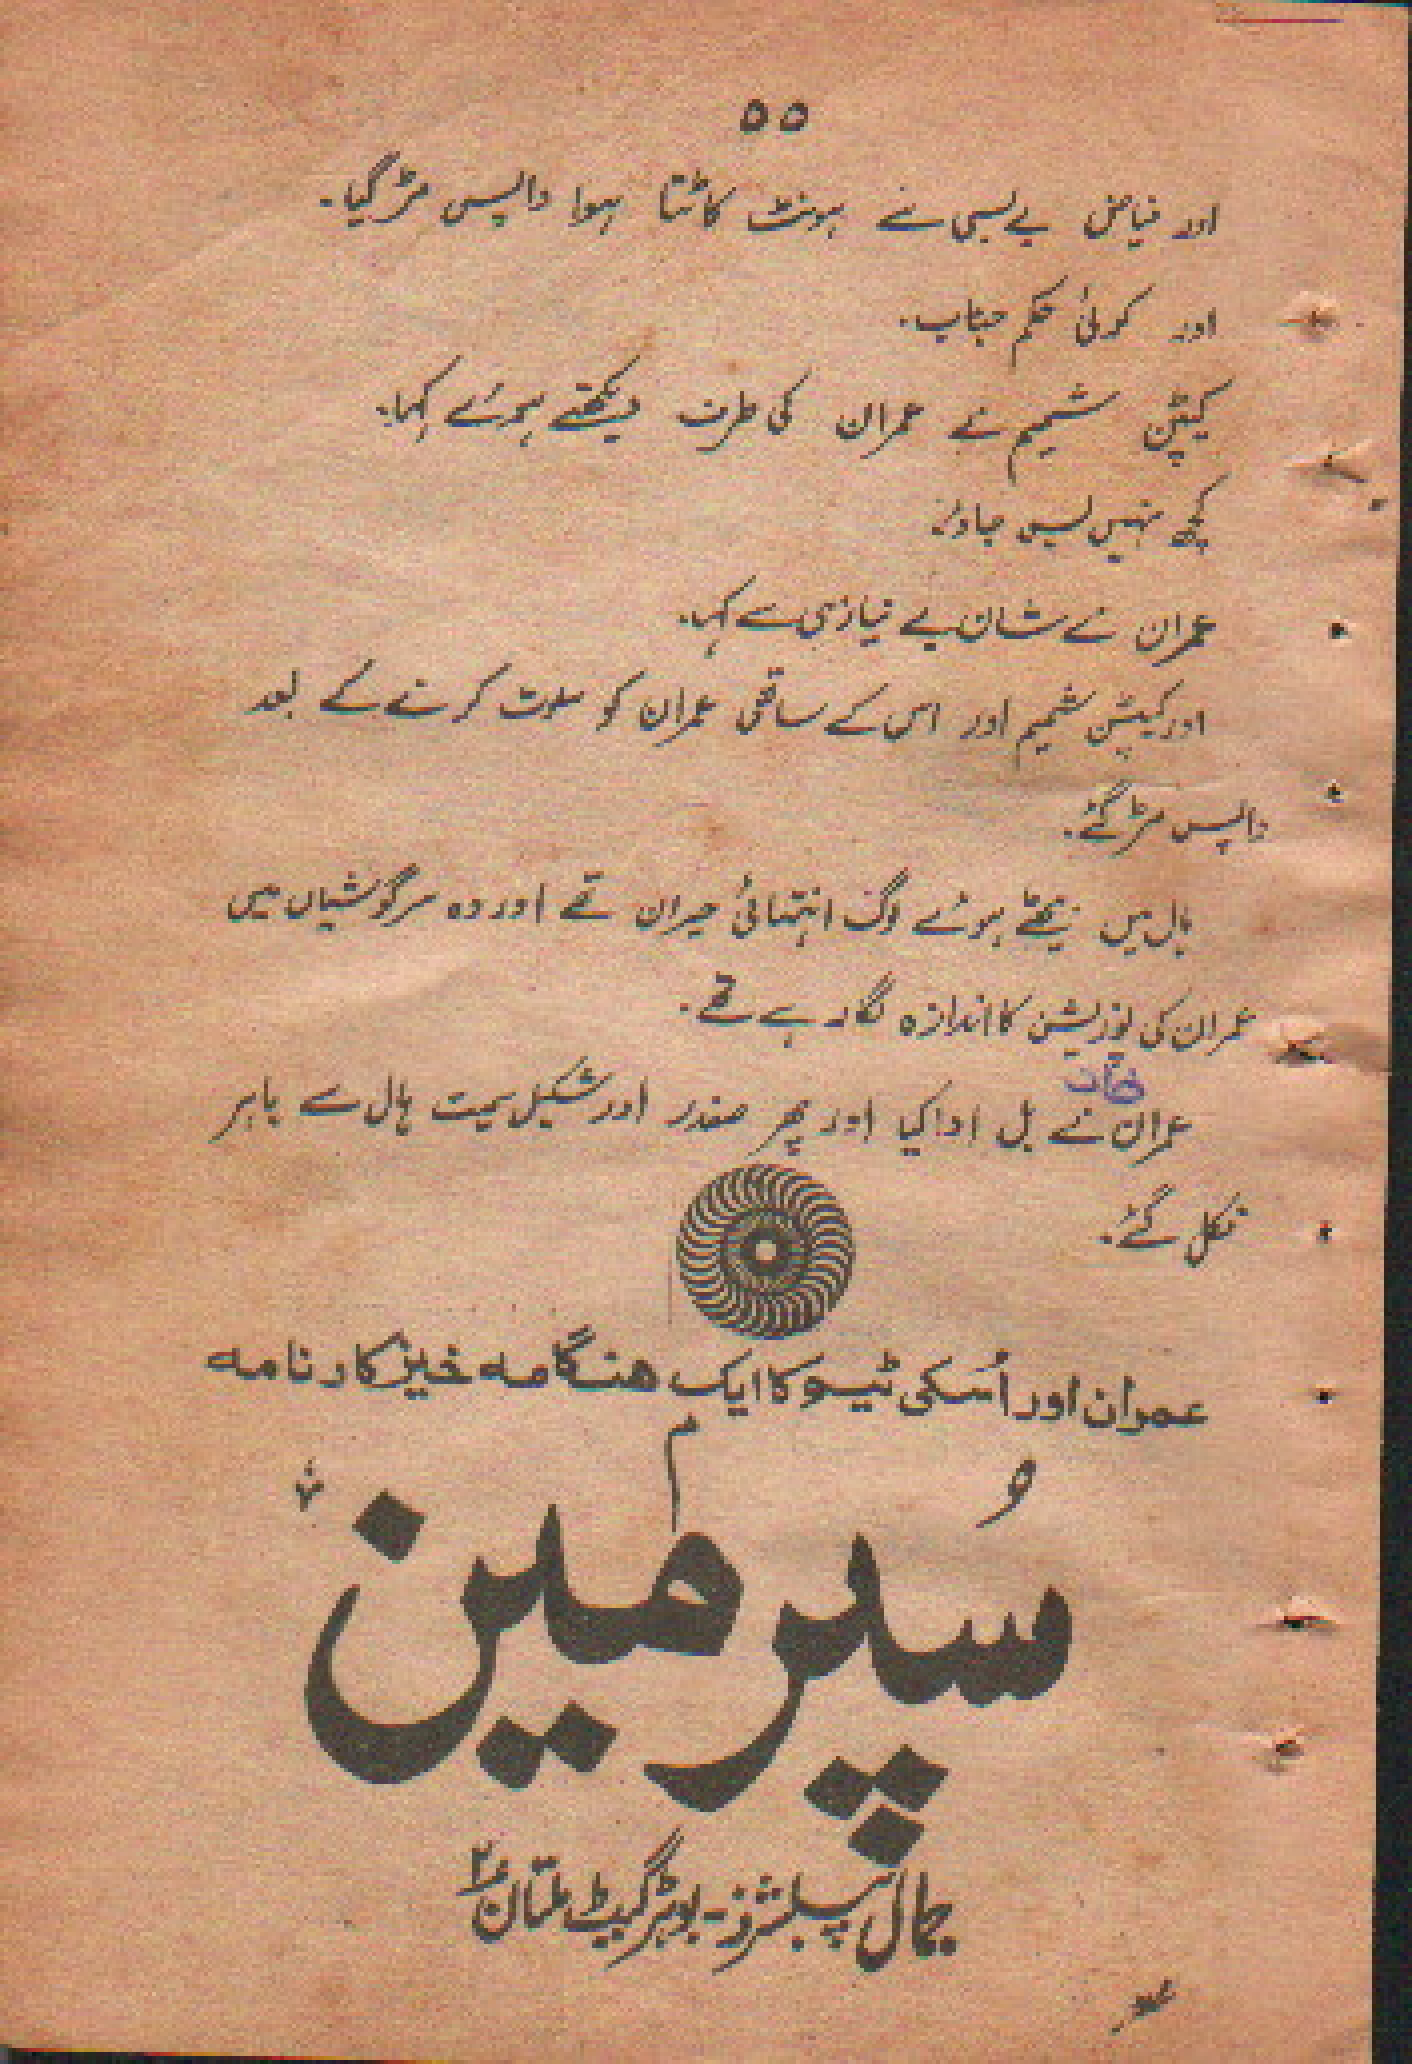 ۵۵
اور فیاض بے بسی نے ہونٹ کاٹتا ہوا واپس مڑ گیا۔
اور کوئی حکم جناب۔
کیپٹن شمیم نے عمران کی طرف دیکھتے ہوئے کہا۔
کچھ نہیں بس جاؤ۔
عمران نے شان بے نیازی سے کہا۔
اور کیپٹن شمیم اور اس کے ساتھی عمران کو سلوٹ کرنے کے بعد
واپس مڑ گئے۔
ہال میں بیٹھے ہوئے لوگ انتہائی حیران تھے اور وہ سرگوشیاں میں
عمران کی پوزیشن کا اندازہ لگا رہے تھے۔
خان
عمران نے بل ادا کیا اور پھر صفدر اور شکیل سمیت ہال سے باہر
نکل گئے۔
عمران اور اُسکی ٹیم کا ایک ہنگامہ خیز کارنامہ
سُپر مین
جمال پبلشرز - بوہڑ گیٹ ملتان